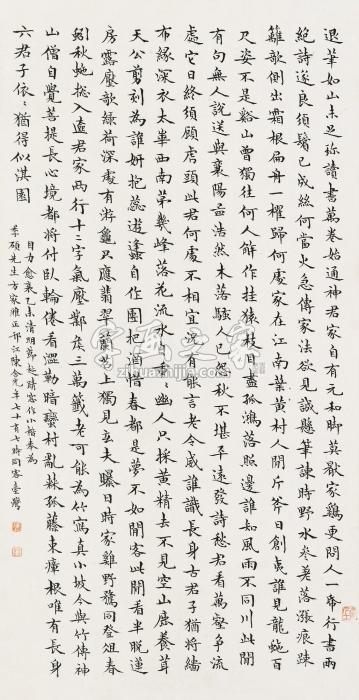 退筆如山未足珍讀書萬卷始通神君家自有元和脚莫厭家雞更問人一帋行書兩
絕詩遂良須鬢已成絲何當火急傳家法欲見誠懸筆諫時野水參差落漲痕疎
籬欹倒出霜根扁舟一櫂歸何處家在江南葉黃村人間斤斧日創夷誰見龍蛇百
尺姿不是谿山曾獨往何人解作挂猿枝目盡孤鴻落照邊知風雨不同川此間
有句無人說送與襄陽孟浩然木落騷人已怨秋不堪平遠發詩愁君看萬壑爭流
處它日終須顧虎頭此君何處不相宜況有能言老令威誰識長身古君子猶將緇
布緣深衣太華西南第幾峰落花流水自重重幽人只採黃精去不見空山鹿養茸
天公剪刻為誰妍抱蕊遊蜂自作團把酒惜春都是夢不如閒客此閒看半脫蓮
房露壓欹綠荷深處有游龜只應翡翠蘭苕上獨見玄夫曝日時家雞野鶩同登俎春
蚓秋蛇總入奩君家兩行十三字氣壓鄴侯三萬籤老可能為竹寫真小坡今與竹傳神
山僧自覺菩提長心境都將付臥輪倦看澀勒暗蠻村亂棘孤藤束瘴根唯有長身
六君子依依猶得似淇園
目力愈衰乙未清明節起晴窗作小楷奉為
季碩先生方家雅正邗江陳含光年七十有七時同客臺灣